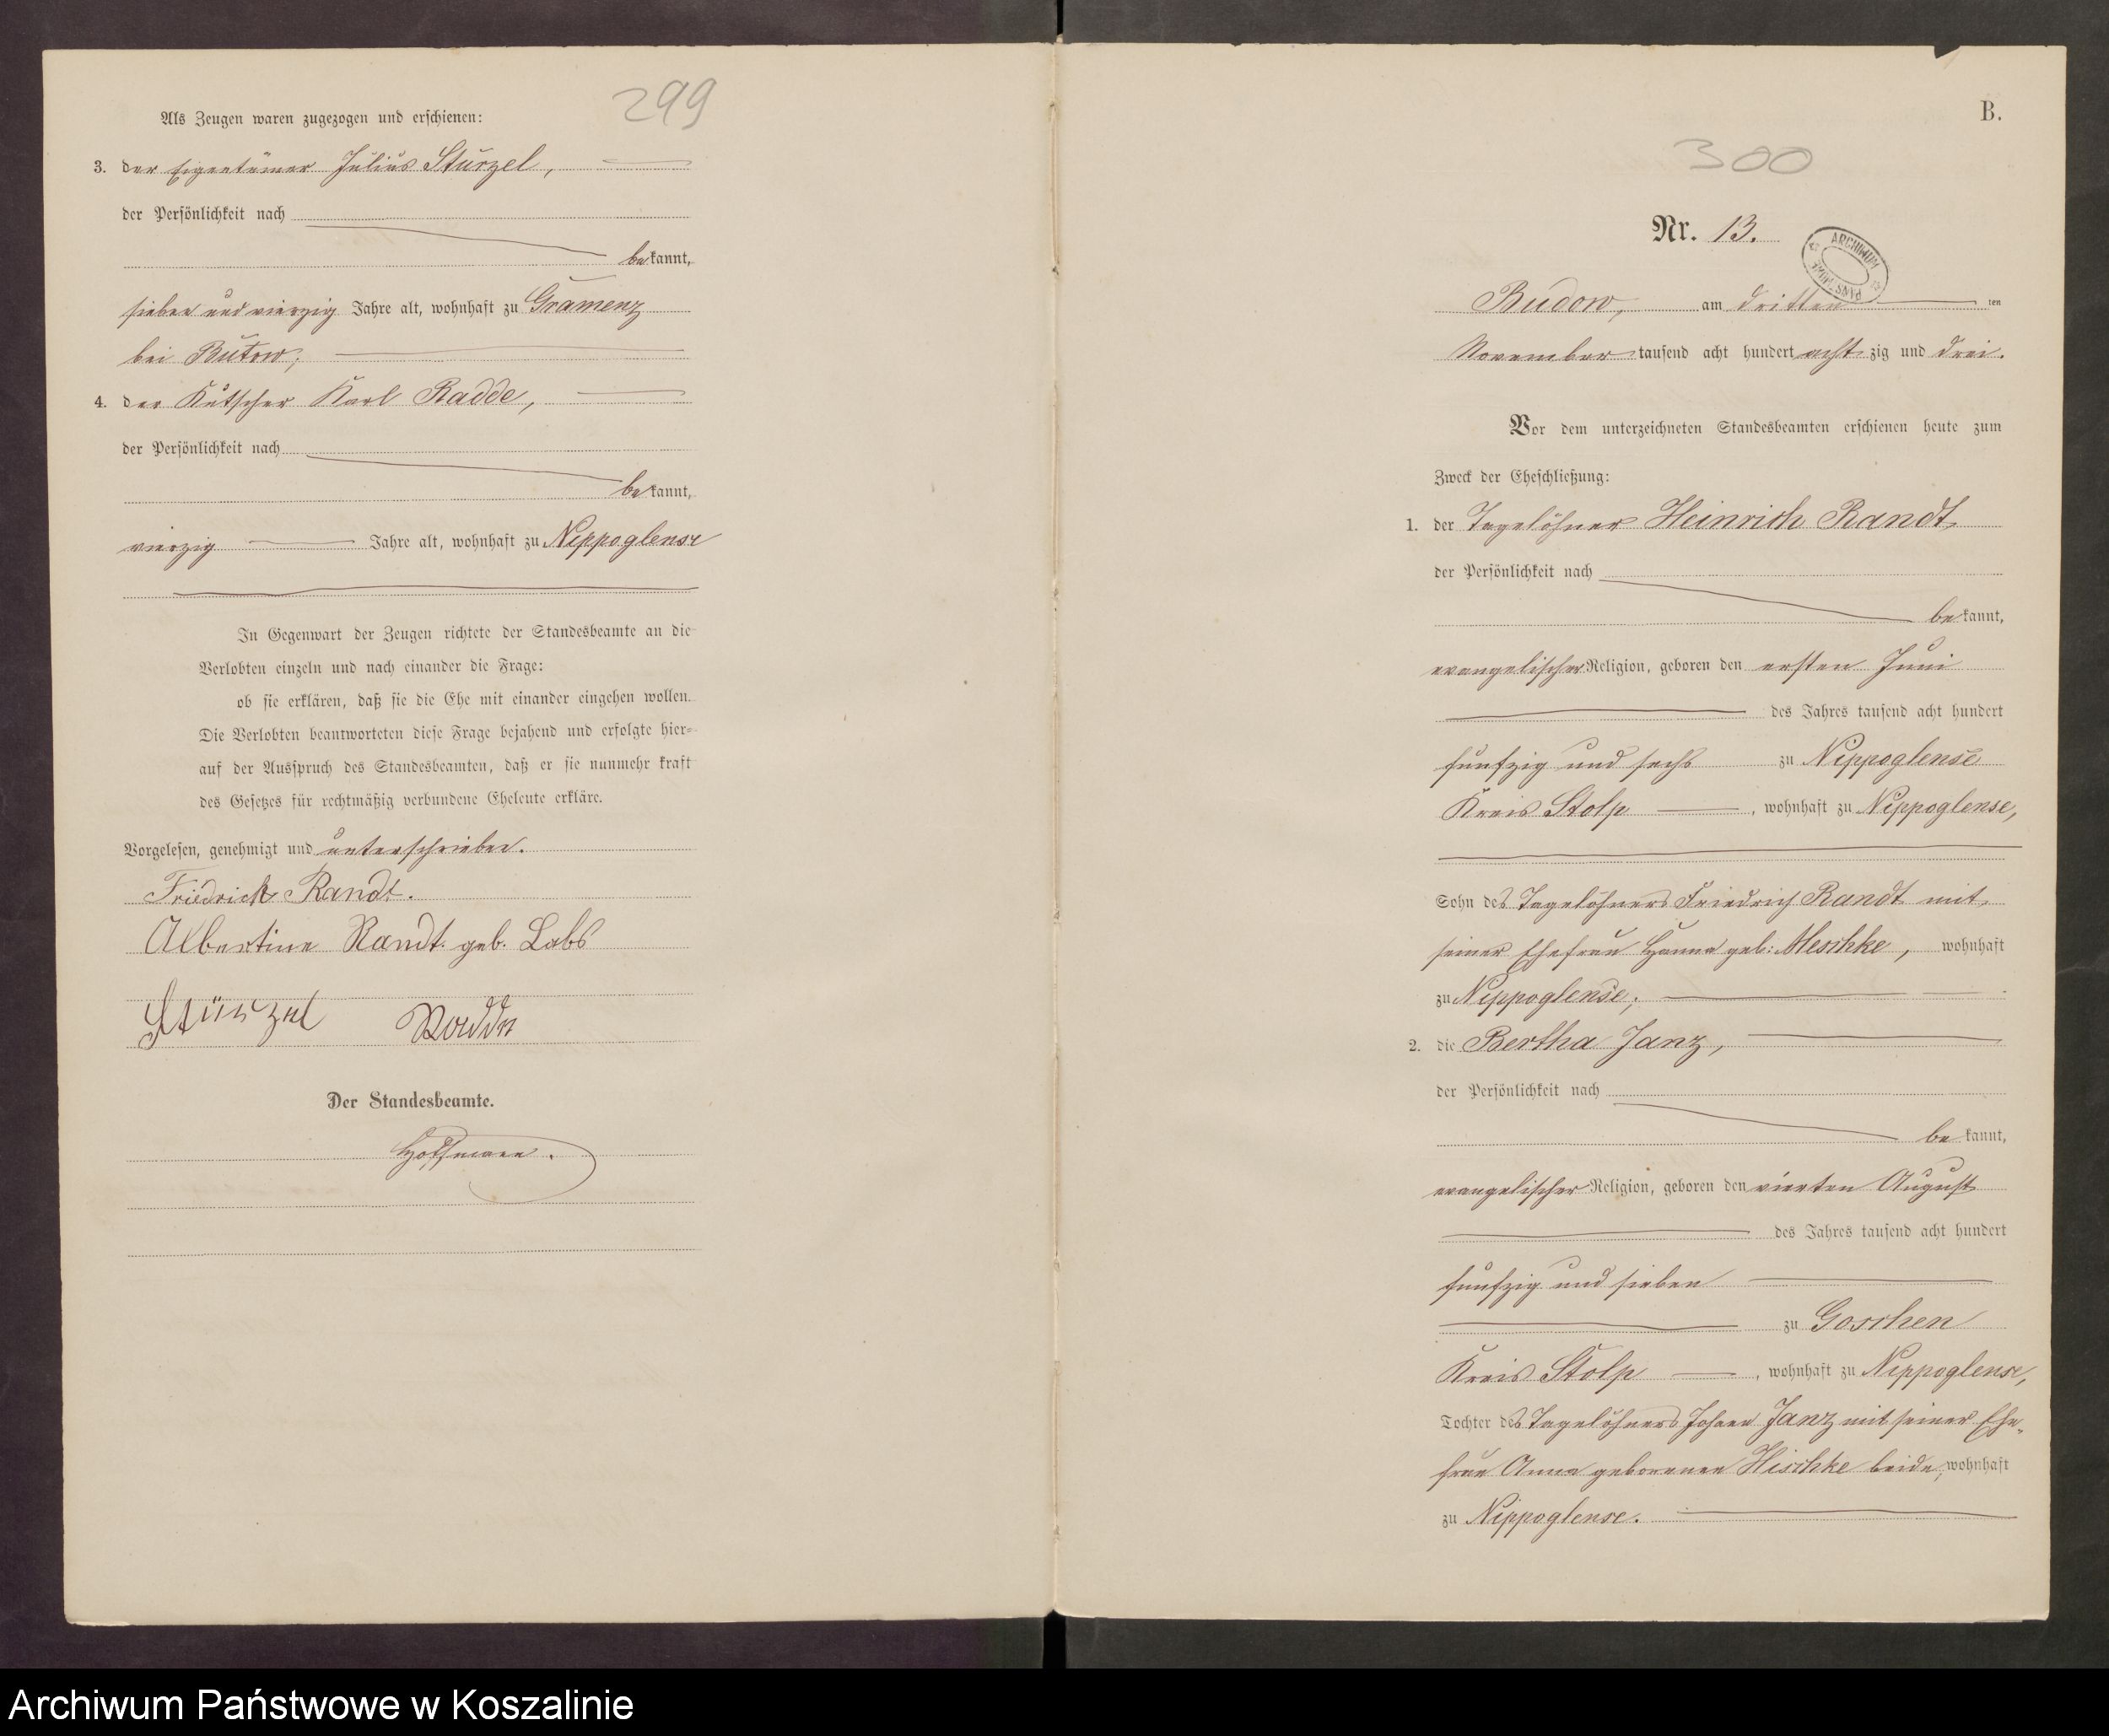 299
Als Zeugen waren zugezogen und erschienen:
3. der Eigentümer Julius Stürzel,
der Persönlichkeit nach
bekannt,
sieben und vierzig Jahre alt, wohnhaft zu Gramenz
bei Bütow;
4. der Kutscher Karl Radde,
der Persönlichkeit nach
bekannt,
vierzig Jahre alt, wohnhaft zu Nippoglense
In Gegenwart der Zeugen richtete der Standesbeamte an die
Verlobten einzeln und nach einander die Frage:
ob sie erklären, daß sie die Ehe mit einander eingehen wollen.
Die Verlobten beantworteten diese Frage bejahend und erfolgte hier=
auf der Ausspruch des Standesbeamten, daß er sie nunmehr kraft
des Gesetzes für rechtmäßig verbundene Eheleute erkläre.
Vorgelesen, genehmigt und unterschrieben.
Friedrich Randt.
Albertine Randt geb. Labs
Stürzel Radde
Der Standesbeamte.
Hoffmann.
B.
300
Nr. 13.
ARCHIWUM PAŃSTWOWE
Budow, am dritten ten
November tausend acht hundert achtzig und drei.
Vor dem unterzeichneten Standesbeamten erschienen heute zum
Zweck der Eheschließung:
1. der Tagelöhner Heinrich Randt
der Persönlichkeit nach
bekannt,
evangelischer Religion, geboren den ersten Juni
des Jahres tausend acht hundert
fünfzig und sechs zu Nippoglense
Kreis Stolp, wohnhaft zu Nippoglense,
Sohn des Tagelöhners Friedrich Randt mit
seiner Ehefrau Hanna geb: Meschke, wohnhaft
zu Nippoglense;
2. die Bertha Janz,
der Persönlichkeit nach
bekannt,
evangelischer Religion, geboren den vierten August
des Jahres tausend acht hundert
fünfzig und sieben
zu Goschen
Kreis Stolp, wohnhaft zu Nippoglense,
Tochter des Tagelöhners Johann Janz mit seiner Ehe=
frau Anna geborenen Hischke beide, wohnhaft
zu Nippoglense.
Archiwum Państwowe w Koszalinie